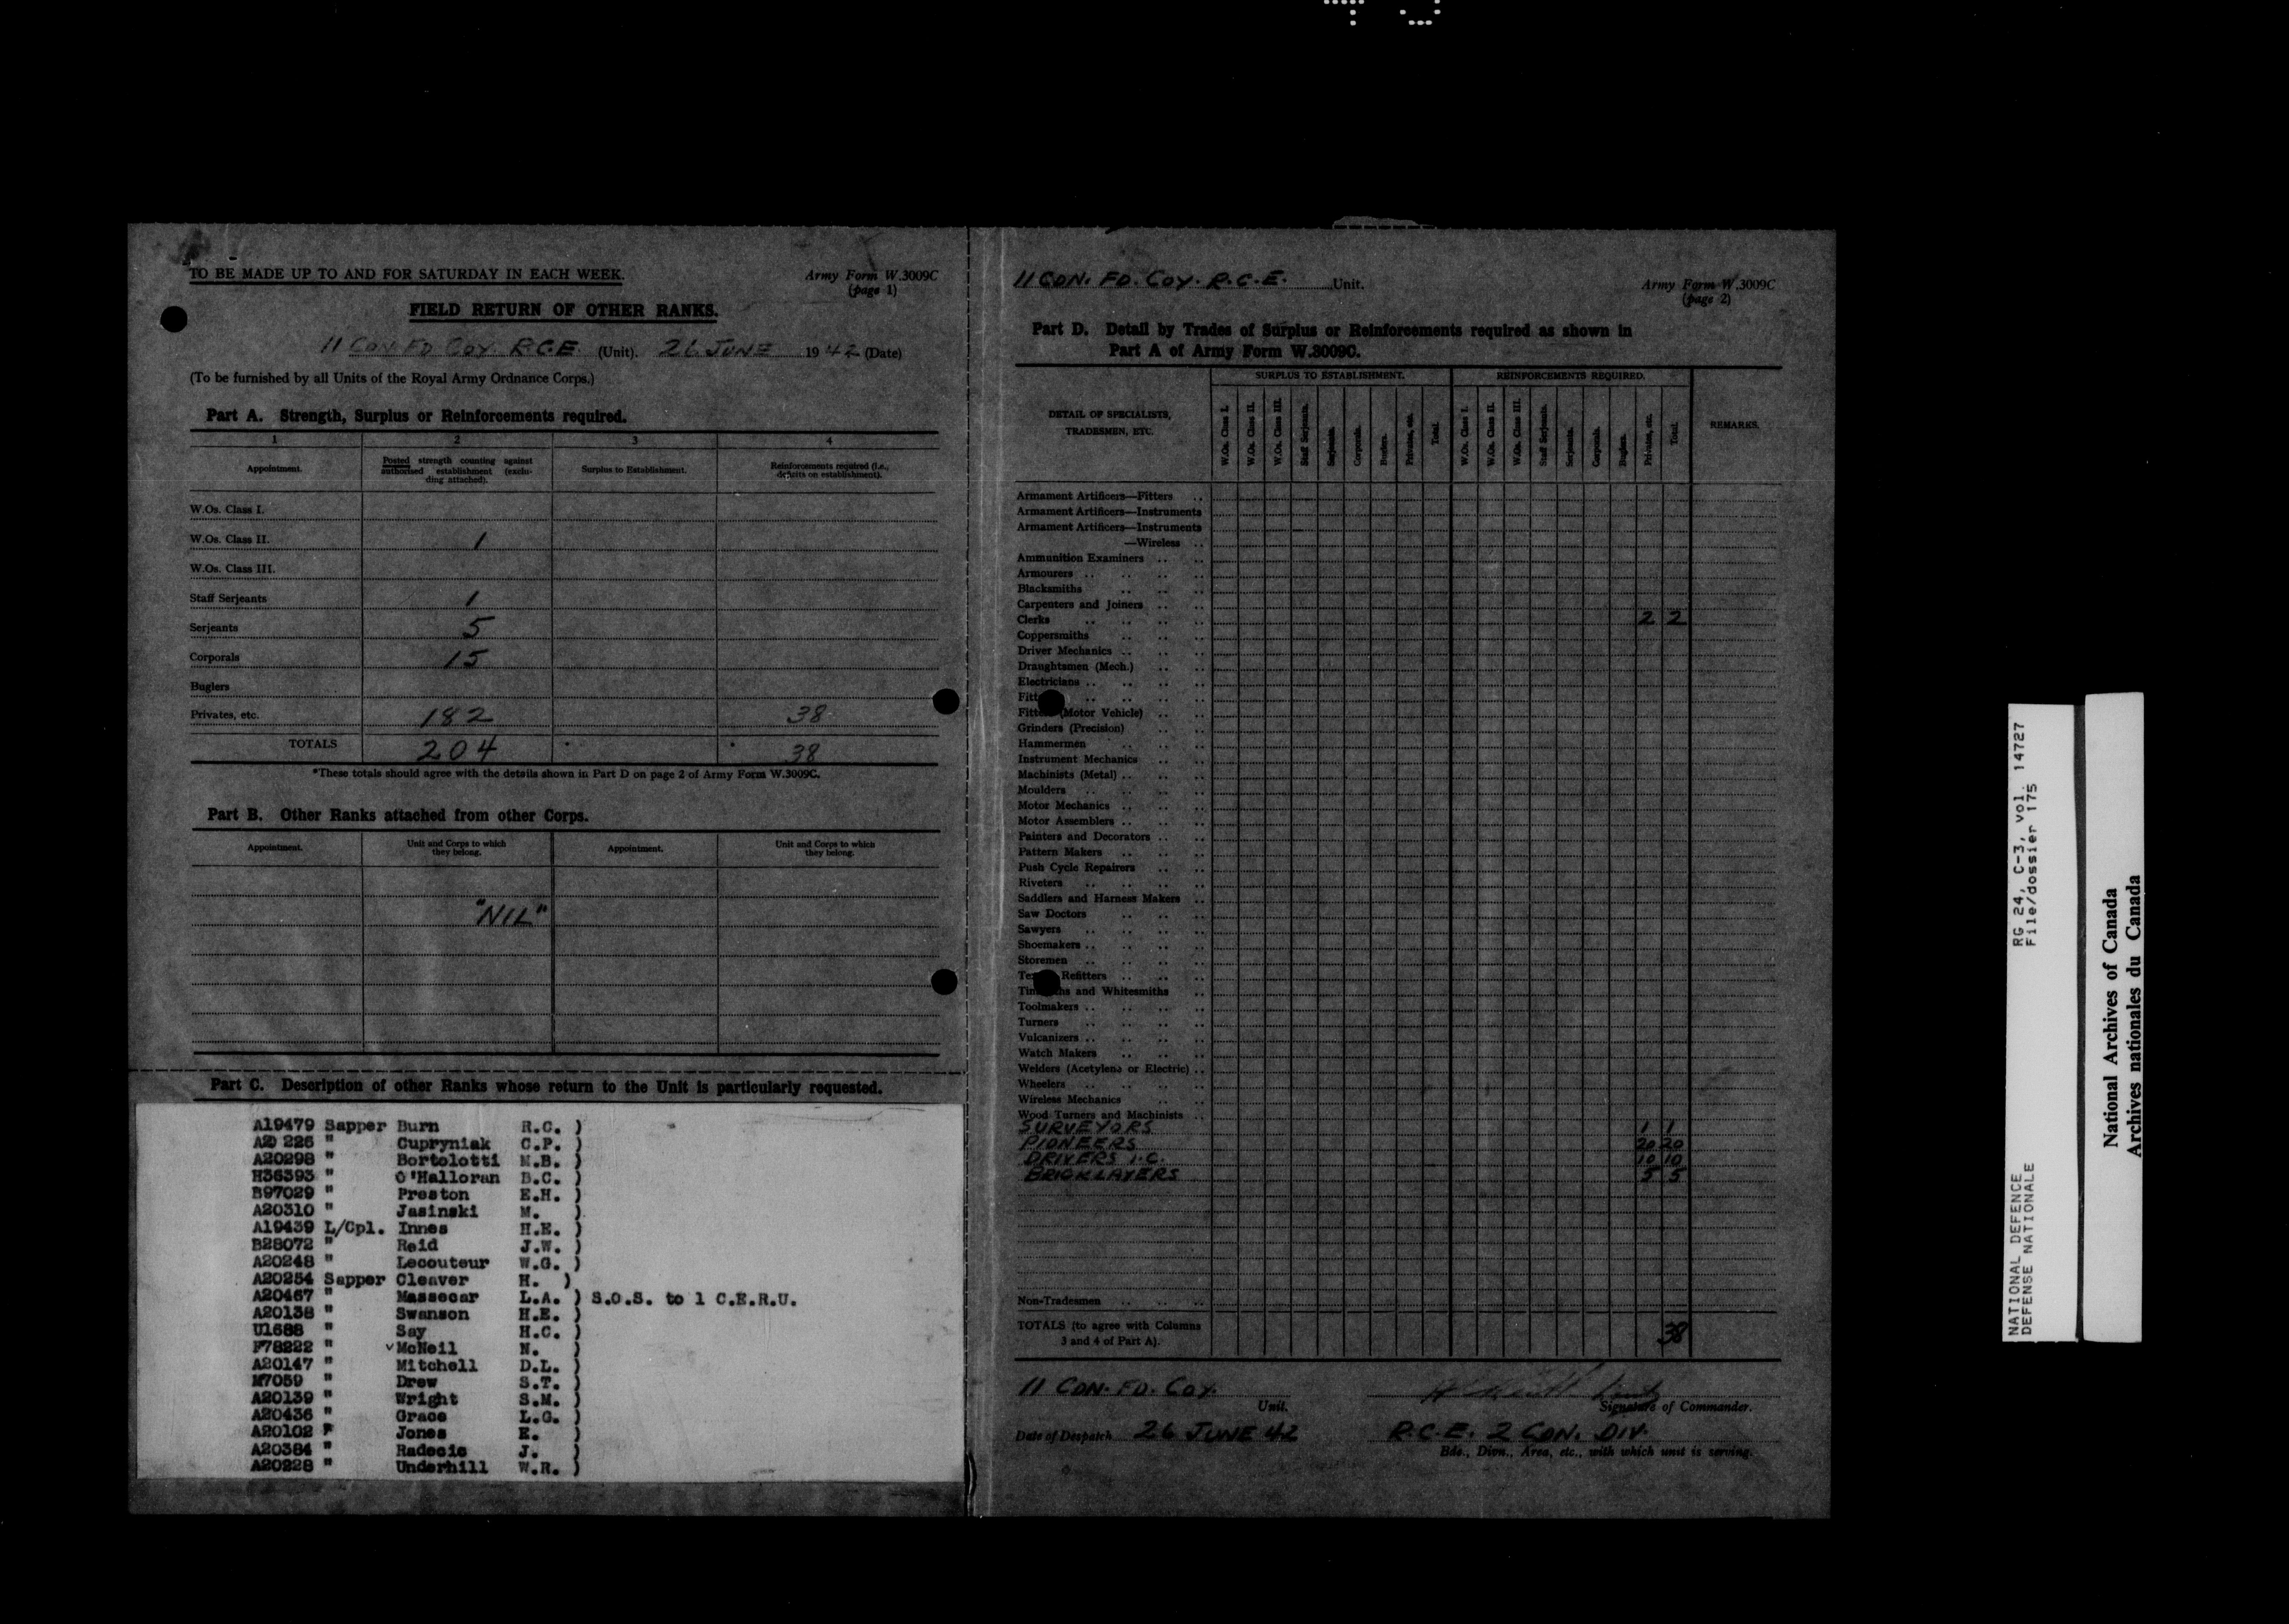 TO BE MADE UP TO AND FOR SATURDAY IN EACH WEEK.
Army Form W.3009C
(page 1)
FIELD RETURN OF OTHER RANKS.
11 CDN. FD COY. R.C.E. (Unit). 26 JUNE 1942 (Date)
(To be furnished by all Units of the Royal Army Ordnance Corps.)
Part A. Strength, Surplus or Reinforcements required.
1 2 3 4
Appointment. Posted strength counting against authorised establishment (excluding attached). Surplus to Establishment. Reinforcements required (i.e., deficits on establishment).
W.Os. Class I.
W.Os. Class II. 1
W.Os. Class III.
Staff Serjeants 1
Serjeants 5
Corporals 15
Buglers
Privates, etc. 182 38
TOTALS 204 * * 38
*These totals should agree with the details shown in Part D on page 2 of Army Form W.3009C.
Part B. Other Ranks attached from other Corps.
Appointment. Unit and Corps to which they belong. Appointment. Unit and Corps to which they belong.
"NIL"
Part C. Description of other Ranks whose return to the Unit is particularly requested.
A19479 Sapper Burn R.C. )
A20226 " Cupryniak C.P. )
A20298 " Bortolotti M.B. )
H36393 " O'Halloran B.C. )
B97029 " Preston E.H. )
A20310 " Jasinski M. )
A19439 L/Cpl. Innes H.E. )
B28072 " Reid J.W. )
A20248 " Lecouteur W.G. )
A20254 Sapper Cleaver H. )
A20467 " Massecar L.A. ) S.O.S. to 1 C.E.R.U.
A20138 " Swanson H.E. )
U1688 " Say H.C. )
F78222 " McNeil N. )
A20147 " Mitchell D.L. )
M7059 " Drew S.T. )
A20139 " Wright S.M. )
A20436 " Grace L.G. )
A20102 " Jones E. )
A20384 " Radecie J. )
A20228 " Underhill W.R. )
11 CDN. FD. COY. R.C.E. Unit.
Army Form W.3009C
(page 2)
Part D. Detail by Trades of Surplus or Reinforcements required as shown in
Part A of Army Form W.3009C.
DETAIL OF SPECIALISTS, TRADESMEN, ETC.
SURPLUS TO ESTABLISHMENT. REINFORCEMENTS REQUIRED. REMARKS.
W.Os. Class I. W.Os. Class II. W.Os. Class III. Staff Serjeants. Serjeants. Corporals. Buglers. Privates, etc. Total.
W.Os. Class I. W.Os. Class II. W.Os. Class III. Staff Serjeants. Serjeants. Corporals. Buglers. Privates, etc. Total.
Armament Artificers—Fitters ..
Armament Artificers—Instruments
Armament Artificers—Instruments
—Wireless ..
Ammunition Examiners .. ..
Armourers .. .. .. ..
Blacksmiths .. .. ..
Carpenters and Joiners .. ..
Clerks .. .. .. .. 2 2
Coppersmiths .. .. ..
Driver Mechanics .. .. ..
Draughtsmen (Mech.) .. ..
Electricians .. .. .. ..
Fitters .. .. ..
Fitters (Motor Vehicle) .. ..
Grinders (Precision) .. ..
Hammermen .. .. ..
Instrument Mechanics .. ..
Machinists (Metal) .. .. ..
Moulders .. .. .. ..
Motor Mechanics .. .. ..
Motor Assemblers .. .. ..
Painters and Decorators .. ..
Pattern Makers .. .. ..
Push Cycle Repairers .. ..
Riveters .. .. .. ..
Saddlers and Harness Makers ..
Saw Doctors .. .. ..
Sawyers .. .. .. ..
Shoemakers .. .. .. ..
Storemen .. .. .. ..
Refitters .. .. ..
Tinsmiths and Whitesmiths ..
Toolmakers .. .. .. ..
Turners .. .. .. ..
Vulcanizers .. .. .. ..
Watch Makers .. .. ..
Welders (Acetylene or Electric) ..
Wheelers .. .. .. ..
Wireless Mechanics .. ..
Wood Turners and Machinists ..
SURVEYORS 1 1
PIONEERS 20 20
DRIVERS I.C. 10 10
BRICKLAYERS 5 5
Non-Tradesmen .. .. ..
TOTALS (to agree with Columns
3 and 4 of Part A). 38
11 CDN. FD. COY.
Unit. Signature of Commander.
Date of Despatch 26 JUNE 42 R.C.E. 2 CDN. DIV.
Bde., Divn., Area, etc., with which unit is serving.
NATIONAL DEFENCE RG 24, C-3, vol. 14727
DEFENSE NATIONALE File/dossier 175
National Archives of Canada
Archives nationales du Canada